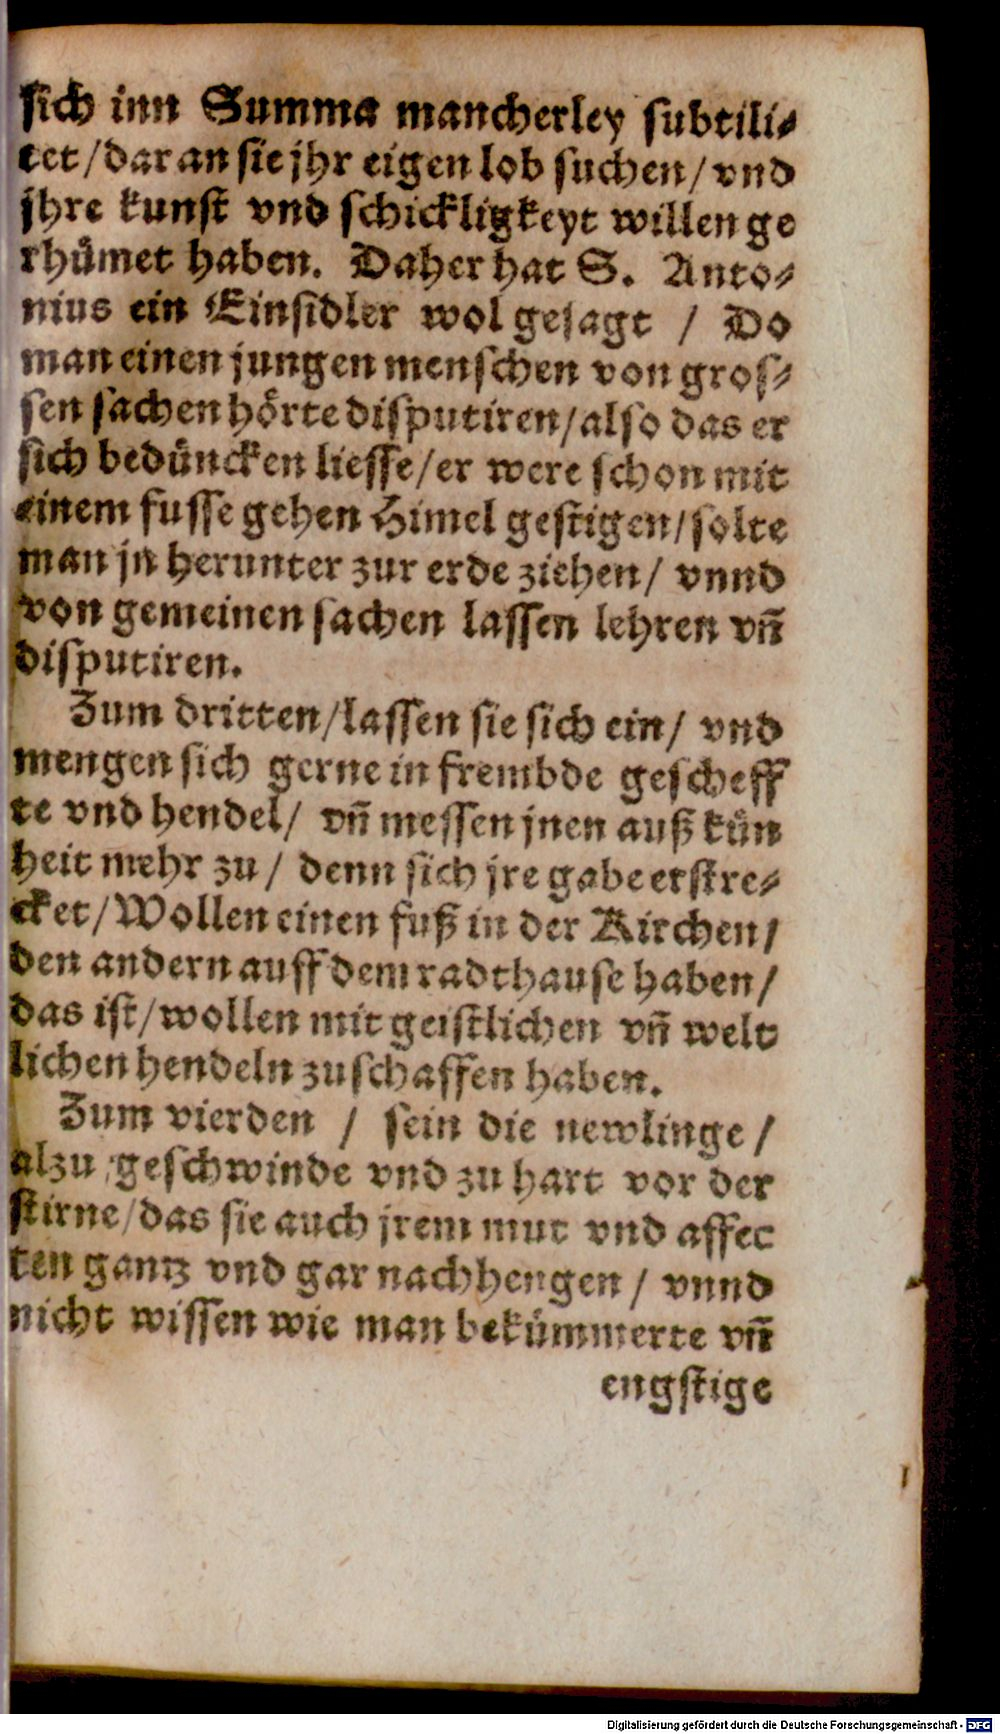 sich inn Summa mancherley subtili⸗
tet/ dar an sie jhr eigen lob suchen/ vnd
jhre kunst vnd schickligkeyt willen ge
rhuͤmet haben. Daher hat S. Anto⸗
nius ein Einsidler wol gesagt / Do
man einen jungen menschen von gros⸗
sen sachen hoͤrte disputiren/ also das er
sich beduͤncken liesse/ er were schon mit
einem fusse gehen Himel gestigen/ solte
man jn herunter zur erde ziehen/ vnnd
von gemeinen sachen lassen lehren vñ
disputiren.
Zum dritten/ lassen sie sich ein/ vnd
mengen sich gerne in frembde gescheff
te vnd hendel/ vñ messen jnen auß kuͤn
heit mehr zu/ denn sich jre gabe erstre⸗
cket/ Wollen einen fuß in der Kirchen/
den andern auff dem radthause haben/
das ist/ wollen mit geistlichen vñ welt
lichen hendeln zuschaffen haben.
Zum vierden / sein die newlinge/
alzu geschwinde vnd zu hart vor der
stirne/ das sie auch jrem mut vnd affec
ten gantz vnd gar nachhengen/ vnnd
nicht wissen wie man bekuͤmmerte vñ
engstige
Digitalisierung gefördert durch die Deutsche Forschungsgemeinschaft - DFG